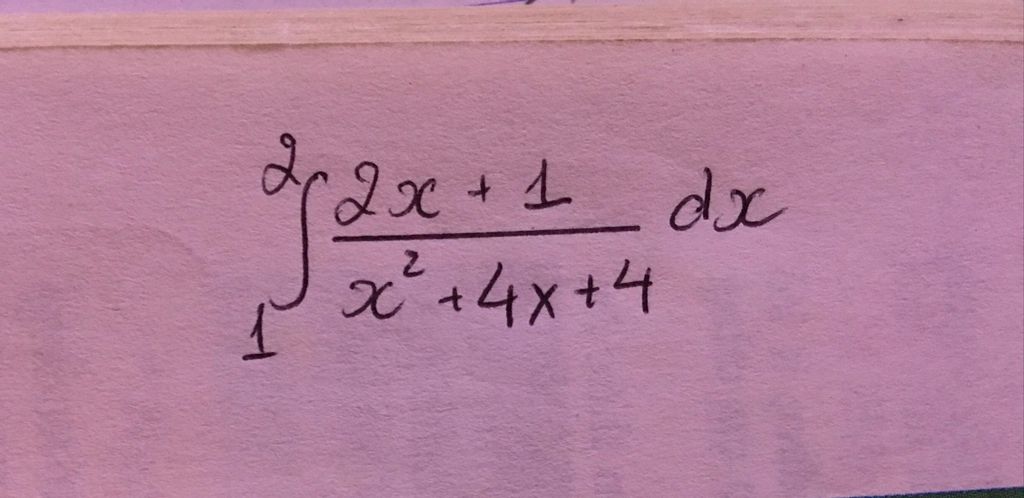 ∫₁² (2x + 1)/(x² + 4x + 4) dx